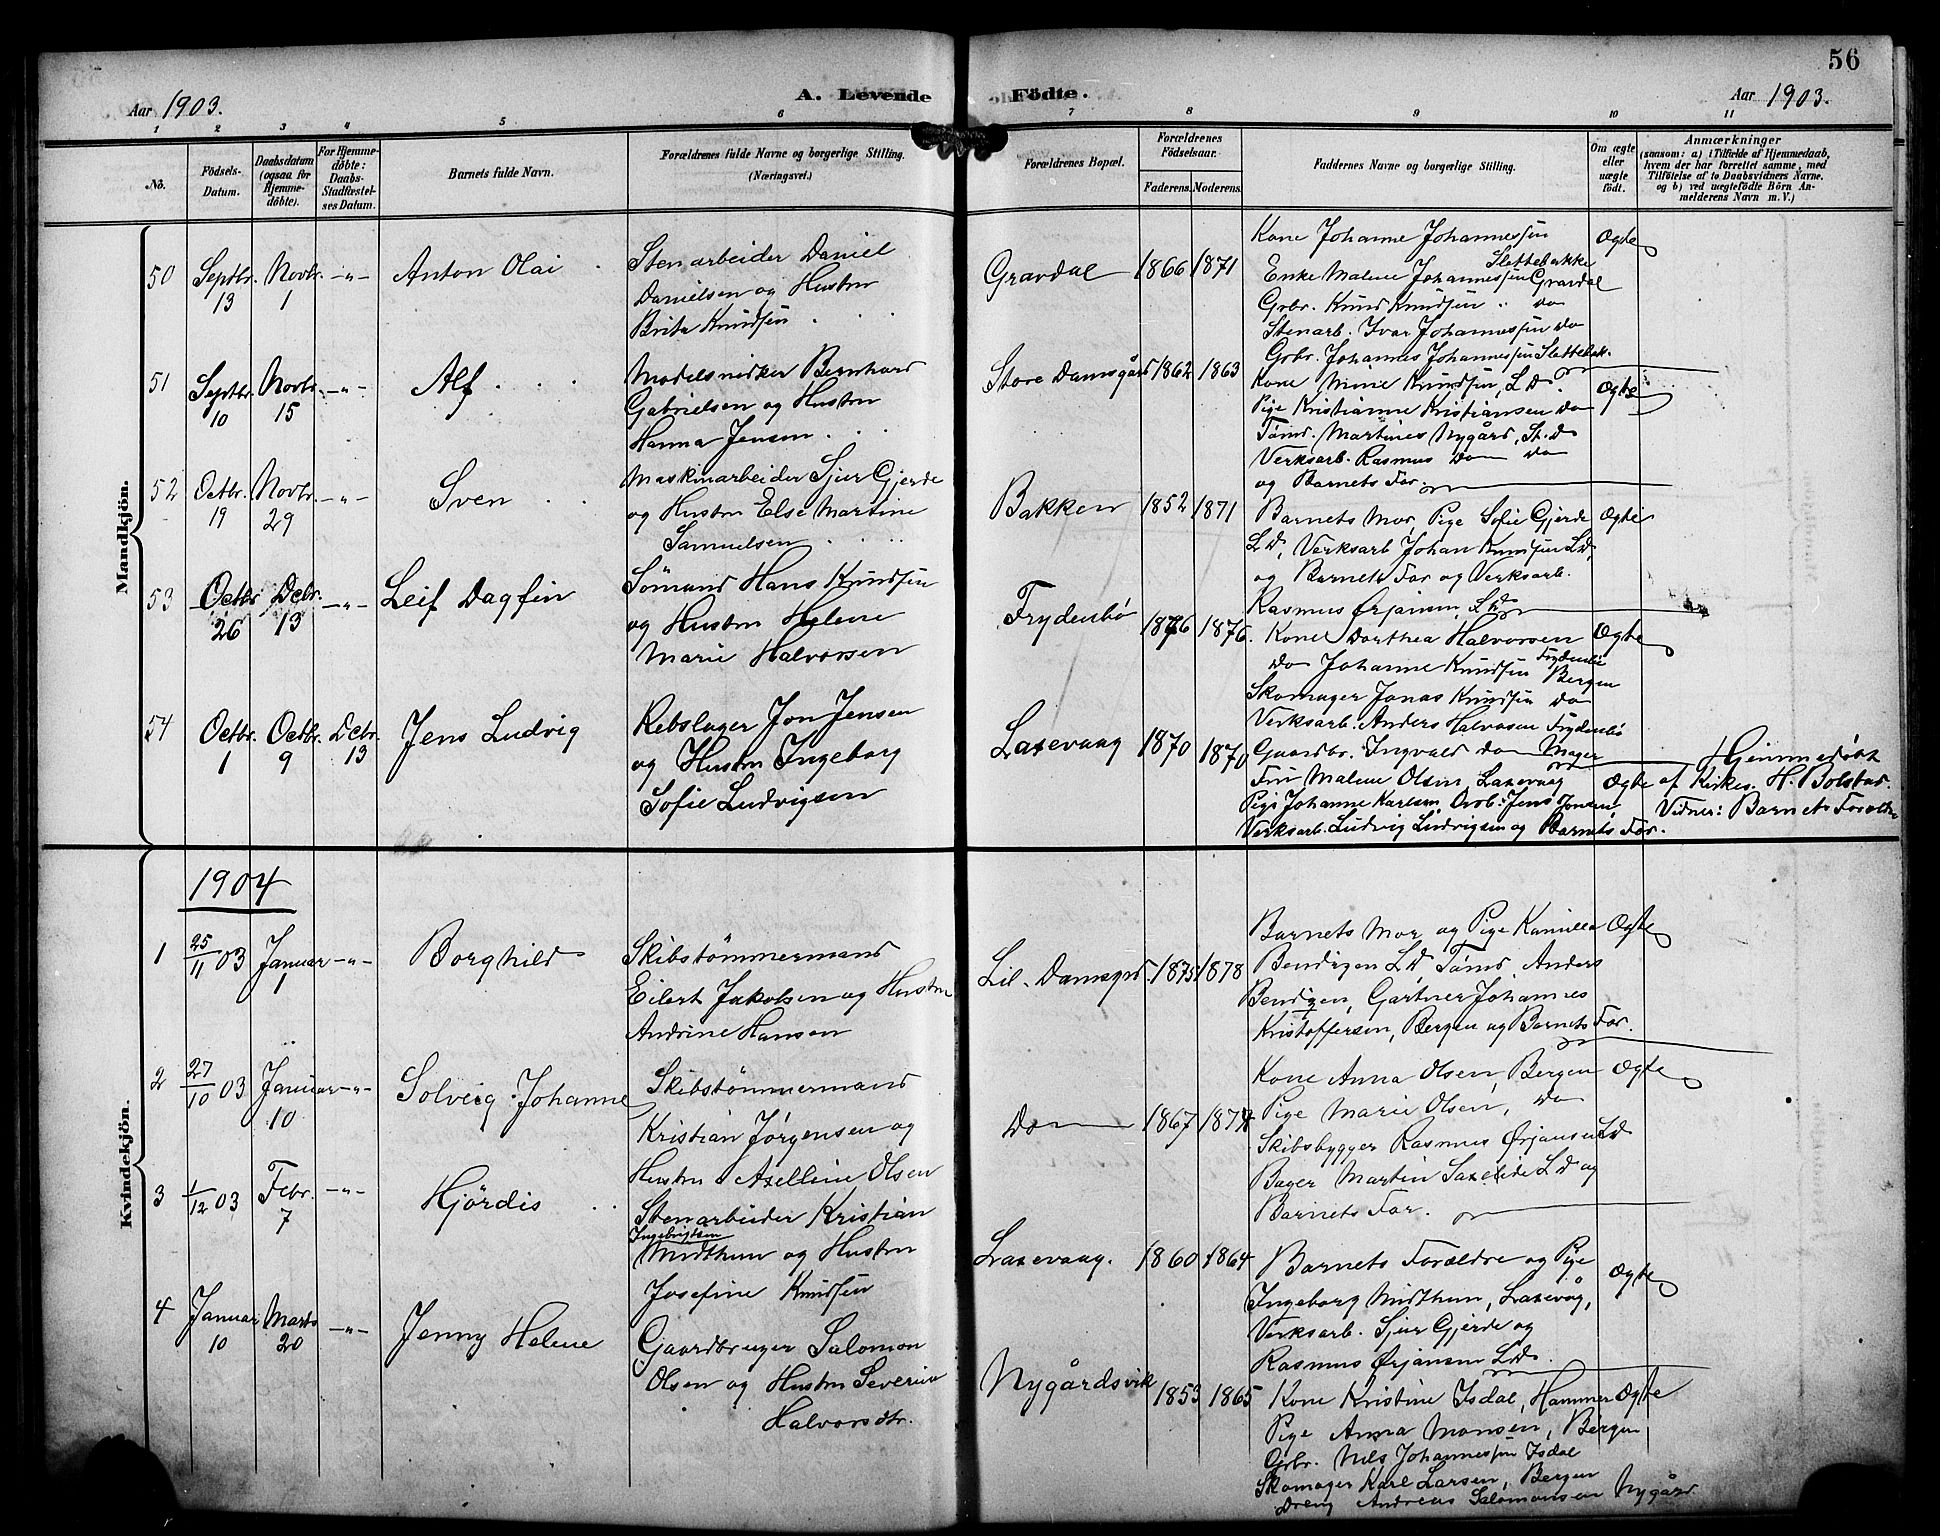 56
Aar 1903.
A. Levende Födte.
Aar 1903.
1 2 3 4 5 6 7 8 9 10 11
No.
Födsels-Datum.
Daabsdatum (ogsaa for Hjemme-döbte).
For Hjemme-döbte: Daabs-Stadfæstel-ses Datum.
Barnets fulde Navn.
Forældrenes fulde Navne og borgerlige Stilling.
(Næringsvei.)
Forældrenes Bopæl.
Forældrenes Födselsaar.
Faderens. Moderens.
Faddernes Navne og borgerlige Stilling.
Om ægte eller uægte födt.
Anmærkninger
(saasom: a) i Tilfælde af Hjemmedaab,
hvem der har forrettet samme, med
Tilföielse af to Daabsvidners Navne.
og b) ved uægtefödte Börn An-
melderens Navn m.V.)
Mandkjön.
50 Septbr. 13 Novbr. 1 -„- Anton Olai
Stenarbeider Daniel
Danielsen og Hustru
Brita Knudsen
Gravdal 1866 1871
Kone Johanne Johannessen
Slettebakke
Enke Malene Johannessen Gravdal
Grbr. Knud Knudsen " do
Stenarb. Ivar Johannessen do
Grbr. Johannes Johannessen Slettebak.
Ægte
51 Septbr. 10 Novbr. 15 -„- Alf
Modelsnedker Bernhard
Gabrielsen og Hustru
Hanna Jensen
Store Damsgård 1862 1863
Kone Mine Knudsen, L.D.
Pige Kristianne Kristiansen do
Tømd. Martines Nygård, St. D
Verksarb. Rasmus do do
og Barnets Far.
Ægte
52 Octbr. 19 Novbr. 29 -„- Sven
Maskinarbeider Sjur Gjerde
og Hustru Else Martine
Samuelsen
Bakken 1852 1871
Barnets Mor, Pige Sofie Gjerde
L.D, Verksarb Johan Knudsen L.D,
og Barnets Far og Verksarb.
Rasmus Ørjansen, L.D
Ægte
53 Octbr. 26 Debr. 13 -„- Leif Dagfin
Sømand Hans Knudsen
og Hustru Helene
Marie Halvorsen
Frydenbø 1876 1876.
Kone Dorthea Halvorsen
Frydenbø
do Johanne Knudsen Bergen
Skomager Jonas Knudsen do
Verksarb. Anders Halvorsen Frydenbø
Gaardbr. Ingvald do Mager
Ægte
54 Octbr. 1 Octbr. 9 Debr. 13 Jens Ludvig
Rebslager Jon Jensen
og Hustru Ingeborg
Sofie Ludvigsen
Laxevaag 1870 1870
Fru Malene Olsen Laxevaag
Pige Johanne Karlsen, Jens Jonsen,
Verksarb. Ludvig Ludvigsen og Barnets Far.
Ægte
Hjemmedøbt
af Kirkes. H. Bolstad.
Vidner: Barnets Foreldre
Kvindekjön.
1904
1 25/11 03 Januar 1 -„- Borghild
Skibstømmermand
Eilert Jakobsen og Hustru
Andrine Hansen
Lil. Damsgrd 1875 1878
Barnets Mor og Pige Kamilla
Bendixen L.D, Tømd. Anders
Bendixen, Gartner Johannes
Kristoffersen, Bergen og Barnets Far.
Ægte
2 27/10 03 Januar 10 -„- Solveig Johanne
Skibstømmermand
Kristian Jørgensen og
Hustru Axelline Olsen
Do 1867
Kone Anna Olsen, Bergen
Pige Marie Olsen, do
Skibsbygger Rasmus Ørjansen L.D
Bager Martin Laxelide L.D og
Barnets Far.
Ægte
3 1/12 03 Febr. 7 -„- Hjördis
Stenarbeider Kristian
Ingebrigtsen
Midthun og Hustru
Josefine Knudsen
Laxevaag. 1860 1864
Barnets Forældre og Pige
Ingeborg Midthun, Laxevåg,
Verksarb. Sjur Gjerde og
Rasmus Ørjansen L.D.
Ægte
4 Januar 10 Marts 20 -„- Jenny Helene
Gaardbruger Salomon
Olsen og Hustru Severine
Halvorsdtr.
Nygårdsvik 1853 1865
Kone Kristine Isdal, Hammer
Pige Anna Monsen, Bergen
Grbr. Nils Johannessen Isdal
Skomager Karl Larsen, Bergen
Dreng Andreas Salomonsen Nygård.
Ægte